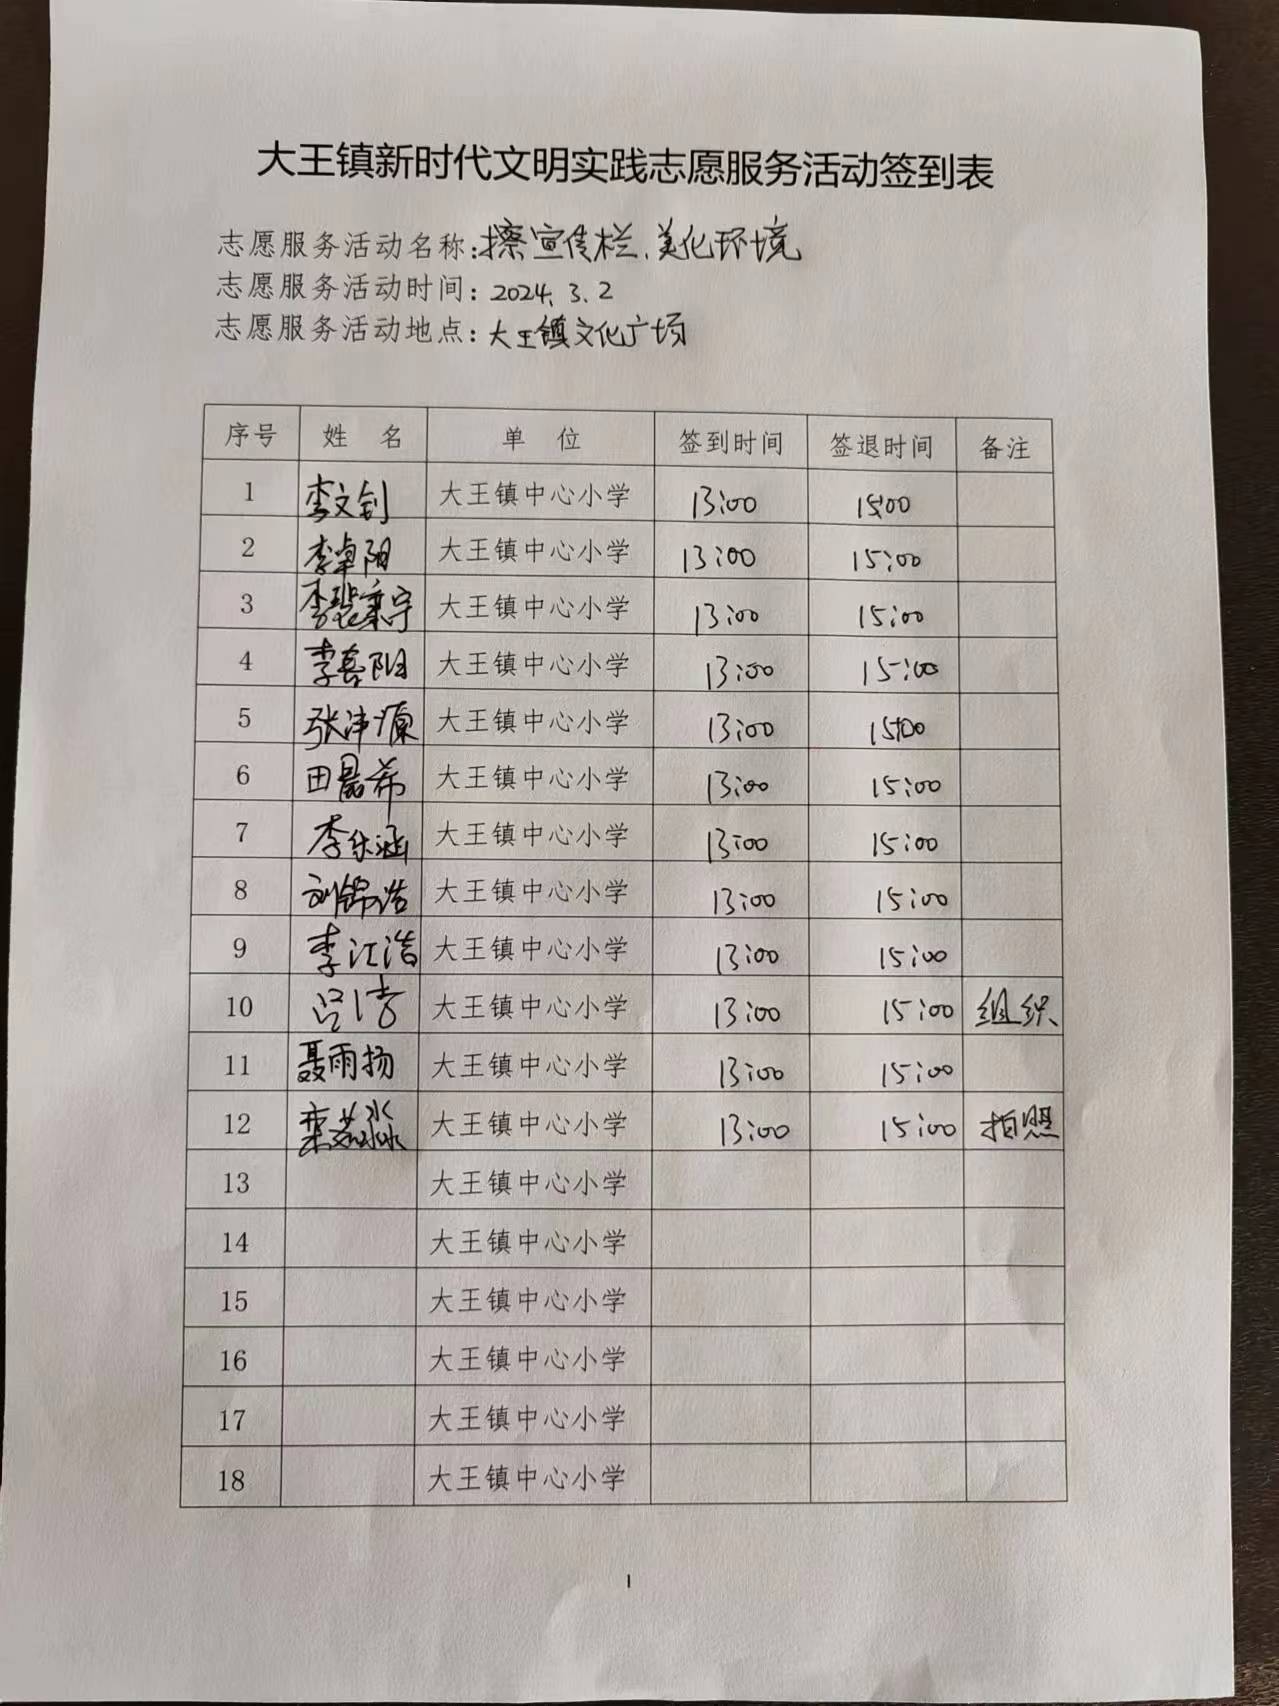 大王镇新时代文明实践志愿服务活动签到表
志愿服务活动名称:擦宣传栏、美化环境
志愿服务活动时间: 2024.3.2
志愿服务活动地点: 大王镇文化广场
序号 姓 名 单 位 签到时间 签退时间 备注
1 李文钊 大王镇中心小学 13:00 15:00
2 李卓阳 大王镇中心小学 13:00 15:00
3 李 宇 大王镇中心小学 13:00 15:00
4 李 阳 大王镇中心小学 13:00 15:00
5 张沣源 大王镇中心小学 13:00 15:00
6 田 希 大王镇中心小学 13:00 15:00
7 李乐涵 大王镇中心小学 13:00 15:00
8 刘锦浩 大王镇中心小学 13:00 15:00
9 李江浩 大王镇中心小学 13:00 15:00
10 吕 大王镇中心小学 13:00 15:00 组织
11 聂雨扬 大王镇中心小学 13:00 15:00
12 栾若淼 大王镇中心小学 13:00 15:00 拍照
13 大王镇中心小学
14 大王镇中心小学
15 大王镇中心小学
16 大王镇中心小学
17 大王镇中心小学
18 大王镇中心小学
1